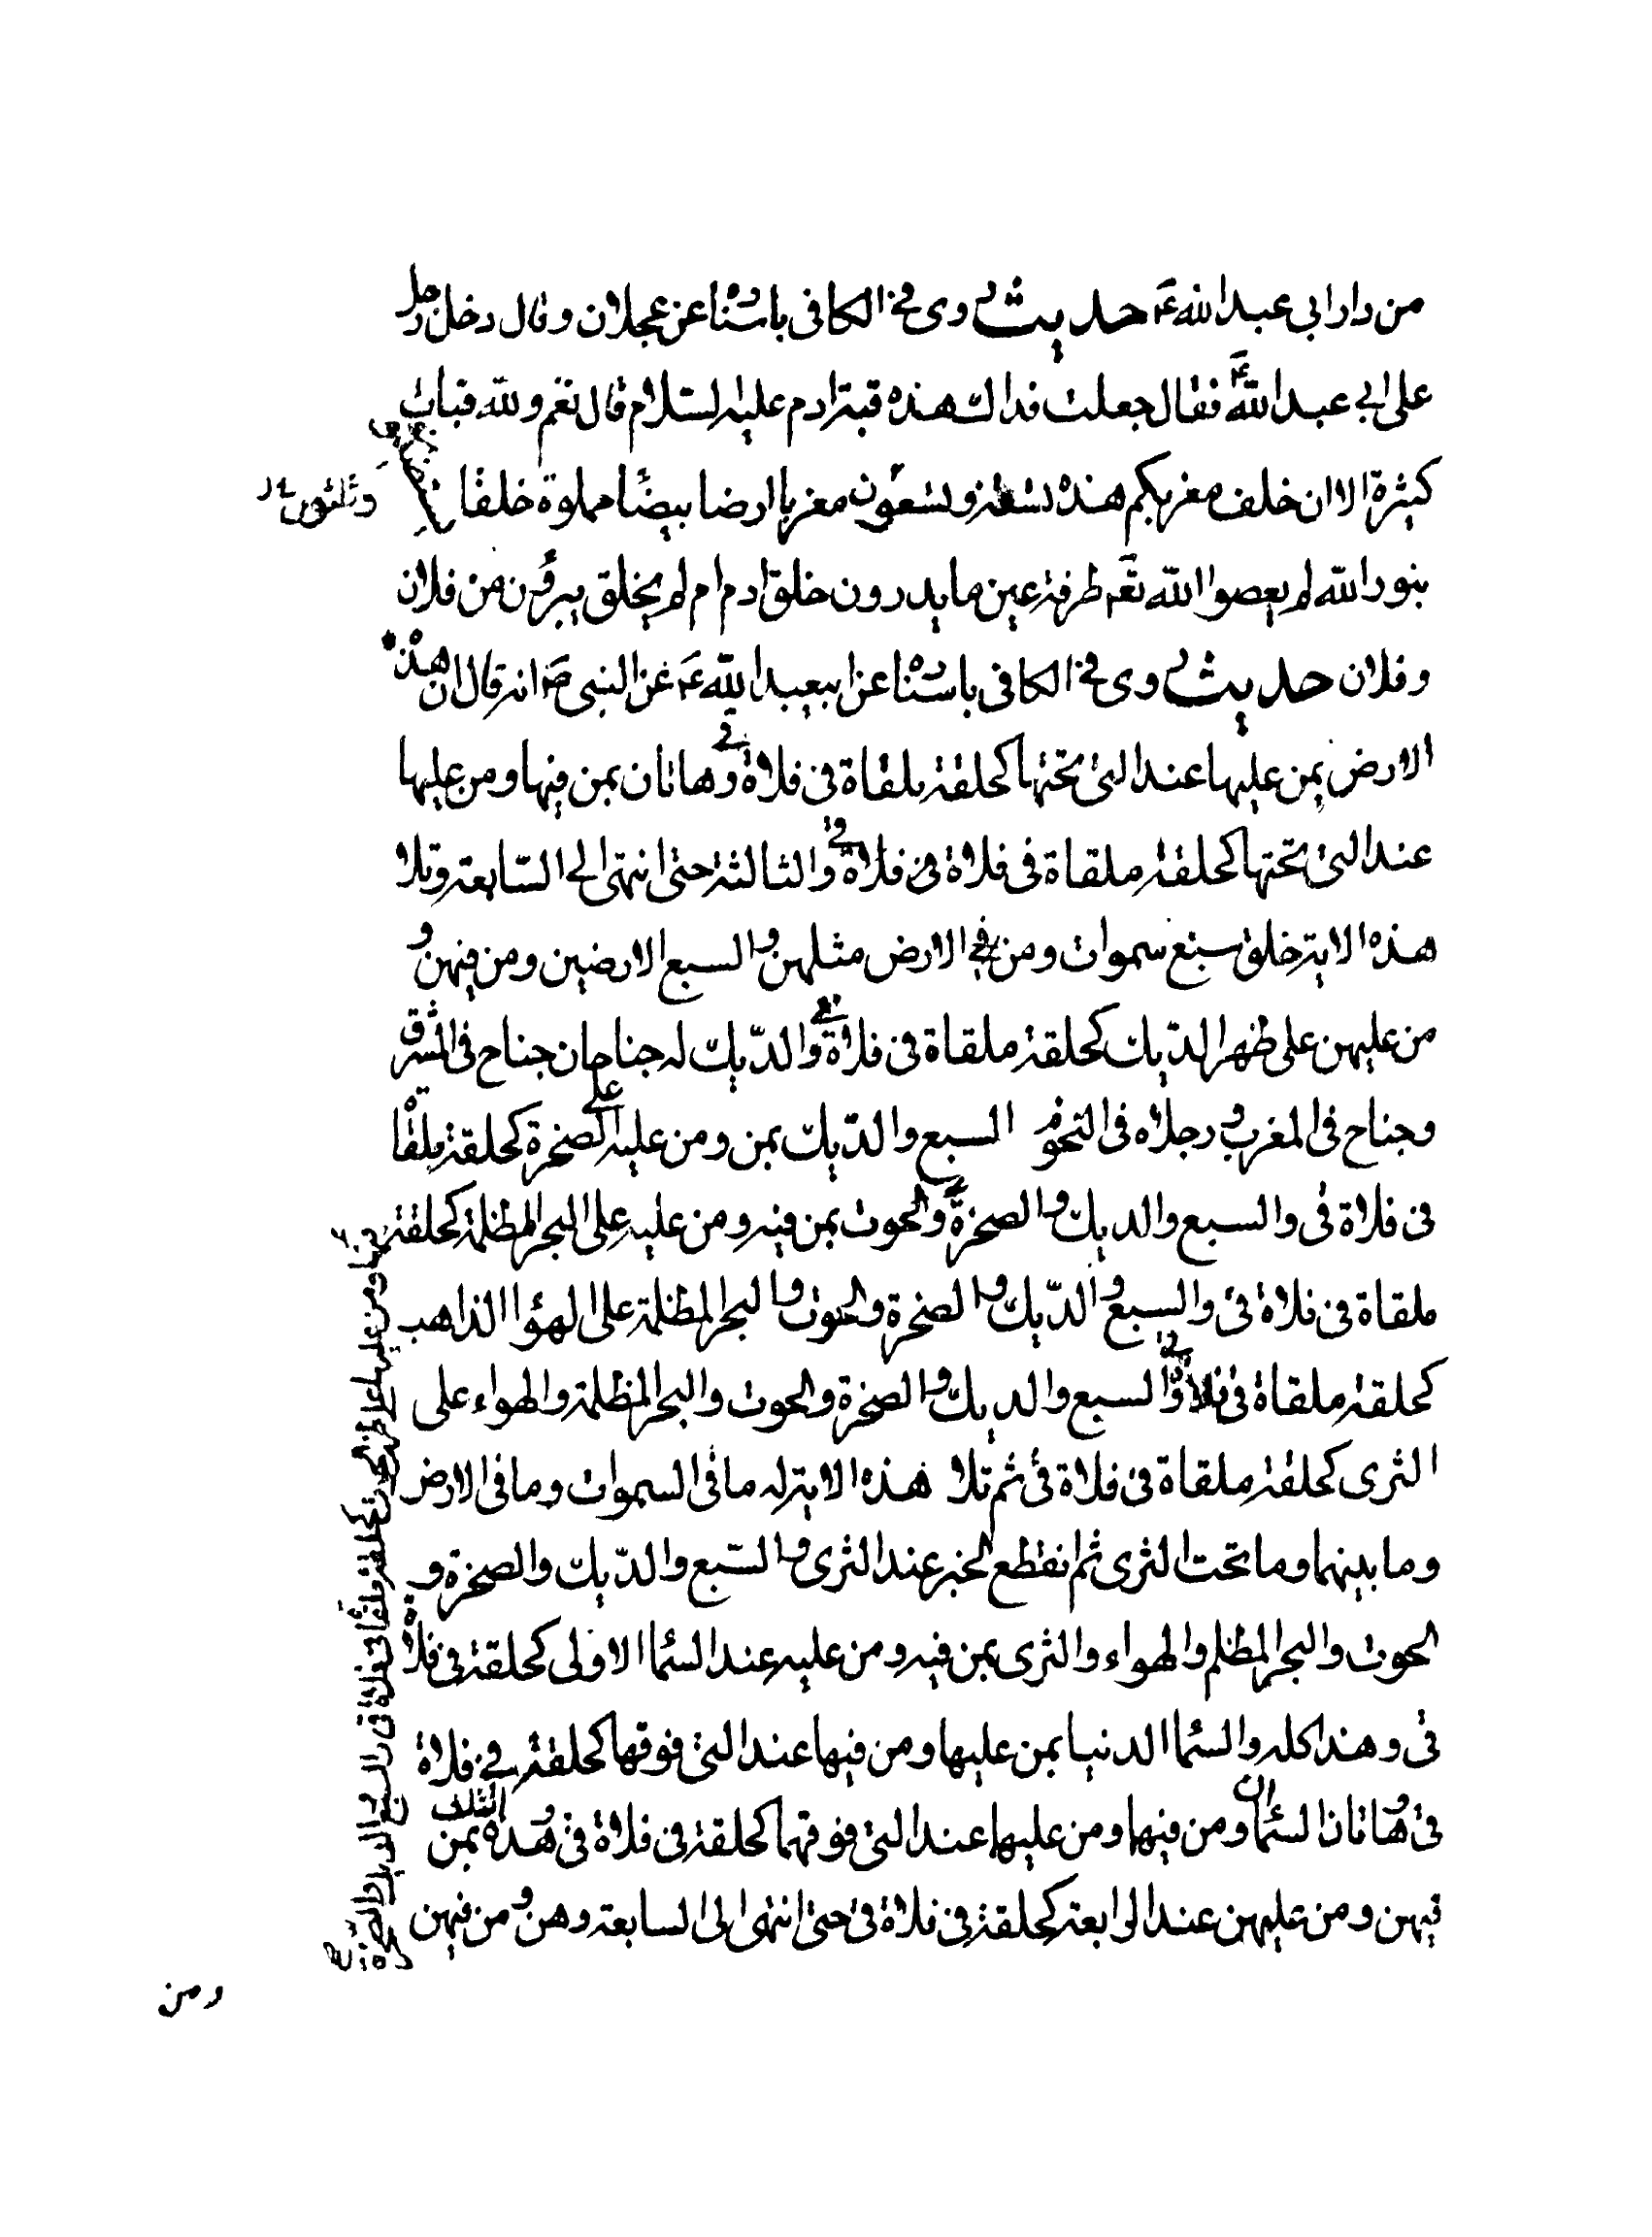 من دار ابي عبد الله ع حديث روى في الكافى باسناده عن عجلان وقال دخل رجل
على ابي عبد الله ع فقال جعلت فداك هذه قبة ادم عليه السلام قال نعم ولله قباب
كثيرة الا ان خلف مغربكم هذه تسعة وتسعون مغربا ارضا بيضا مملوة خلقا
وثلثون
بنور الله لم يعصوا الله تعه طرفة عين ما يدرون خلق ادم ام لم يخلق يبرؤن من فلان
وفلان حديث روى في الكافى باسناده عن ابيعبد الله ع عن النبى ص انه قال ان هذه
الارض بمن عليها عند التى تحتها كحلقة ملقاة فى فلاة قى وهاتان بمن فيها ومن عليها
عند التى تحتها كحلقة ملقاة فى فلاة فى فلاة قى والثالثة حتى انتهى الى السابعة وتلا
هذه الاية خلق سبع سموات ومن في الارض مثلهن والسبع الارضين ومن فيهن و
من عليهن على ظهر الديك كحلقة ملقاة فى فلاة قى والديك له جناحان جناح فى المشرق
وجناح فى المغرب ورجلاه فى التخوم السبع والديك بمن ومن عليه على الصخرة كحلقة ملقاة
فى فلاة قى والسبع والديك والصخرة والحوت بمن فيه ومن عليه على البحر المظلمة كحلقة
ملقاة فى فلاة قى والسبع والديك والصخرة والحوت والبحر المظلمة على الهوا الذاهب
كحلقة ملقاة فى فلاة قى والسبع والديك والصخرة والحوت والبحر المظلمة والهواء على
الثرى كحلقة ملقاة فى فلاة قى ثم تلا هذه الاية له ما فى السموات وما فى الارض
وما بينهما وما تحت الثرى ثم انقطع الخبر عند الثرى والسبع والديك والصخرة و
الحوت والبحر المظلم والهواء والثرى بمن فيه ومن عليه عند السما الاولى كحلقة فى فلاة
قى وهذا كله والسما الدنيا بمن عليها ومن فيها عند التى فوقها كحلقة في فلاة
قى وهاتان السماان ومن فيها ومن عليها عند التى فوقهما كحلقة فى فلاة قى وهذه الثلث بمن
فيهن ومن عليهن عند الرابعة كحلقة فى فلاة قى حتى انتهى الى السابعة وهن ومن فيهن
فيها ومن عليها على ظهر الحوت كحلقة ملقاة فى فلاة قى والسبع والديك والصخرة
ومن